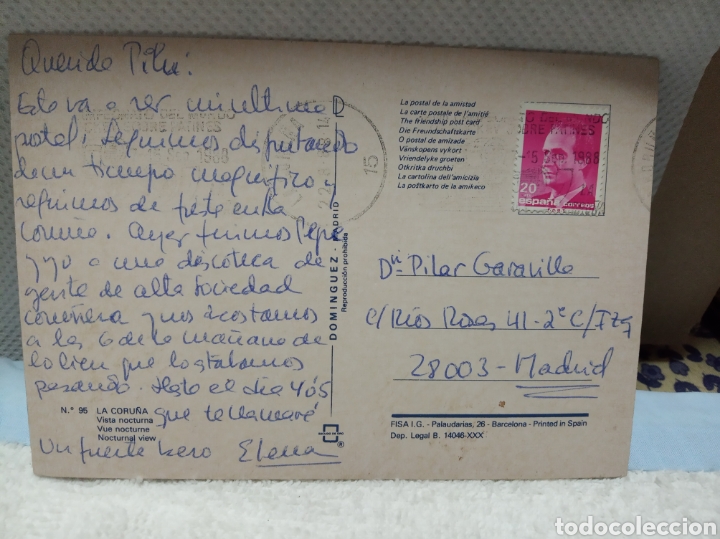 Querida Pilu:
Esta va a ser mi última
postal; seguimos disfrutando
de un tiempo magnífico y
seguimos de fiesta en La
Coruña. Ayer fuimos Pepa
y yo a una discoteca de
gente de alta sociedad
coruñesa y nos acostamos
a las 6 de la mañana de
lo bien que lo estábamos
pasando. Hasta el día 4 ó 5
que te llamaré
Un fuerte beso Elena
N.º 95 LA CORUÑA
Vista nocturna
Vue nocturne
Nocturnal view
DOMINGUEZ - MADRID
Reproducción prohibida
La postal de la amistad
La carte postale de l'amitié
The friendship post card
Die Freundschaftskarte
O postal de amizade
Vänskapens vykort
Vriendelyke groeten
Otkritka druchbi
La cartolina dell'amicizia
La poŝtkarto de la amikeco
MUNDO
SOBRE PATINES
1988
15
20
españa correos
Dñ. Pilar Garavilla
C/ Ríos Rosas 41-2º C/Izq
28003 - Madrid
FISA I.G. - Palaudarias, 26 - Barcelona - Printed in Spain
Dep. Legal B. 14046-XXX
todocoleccion